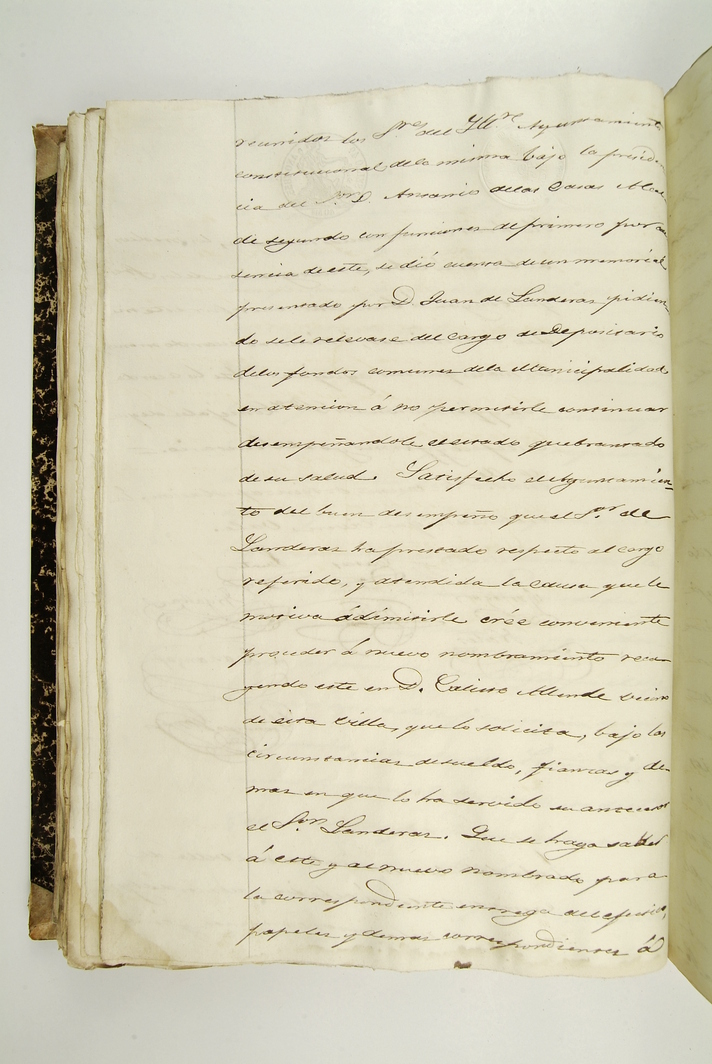 reunidos los Sres del Iltre Ayuntamiento
constitucional dela misma bajo la presiden
cia del Sor D. Antonio delas Casas Alcal
de segundo con funciones de primero por au
sencia de este, se dió cuenta de un memorial
presentado por D. Juan de Landeras pidien
do se le relevase del cargo de Depositario
delos fondos comunes dela Municipalidad
en atencion á no permitirle continuar
desempeñandole el estado quebrantado
de su salud. Satisfecho el Ayuntamien=
to del buen desempeño que el Sor de
Landeras ha prestado respecto al cargo
referido, y atendida la causa que le
motiva á dimitirle crée conveniente
proceder á nuevo nombramiento reca
yendo este en D. Allende vecino
de ésta villa, que lo solicita, bajo las
circunstancias de sueldo, fianzas y de=
mas en que lo ha servido su antecesor
el Sor Landeras. Que se haga saber
á este y al nuevo nombrado para
la correspondiente entrega de efectos,
papeles y demas correspondientes á